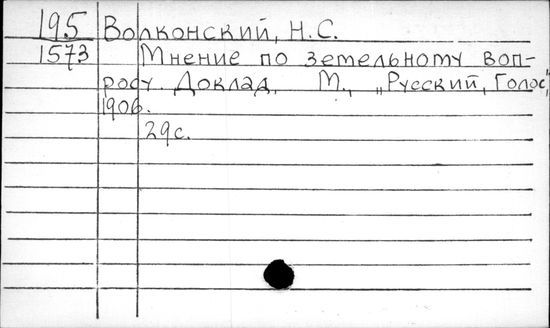 195 Волконский, Н.С.
1573 Мнение по земельному воп-
росу. Доклад, М., „Русский, Голос",
1906.
29с.